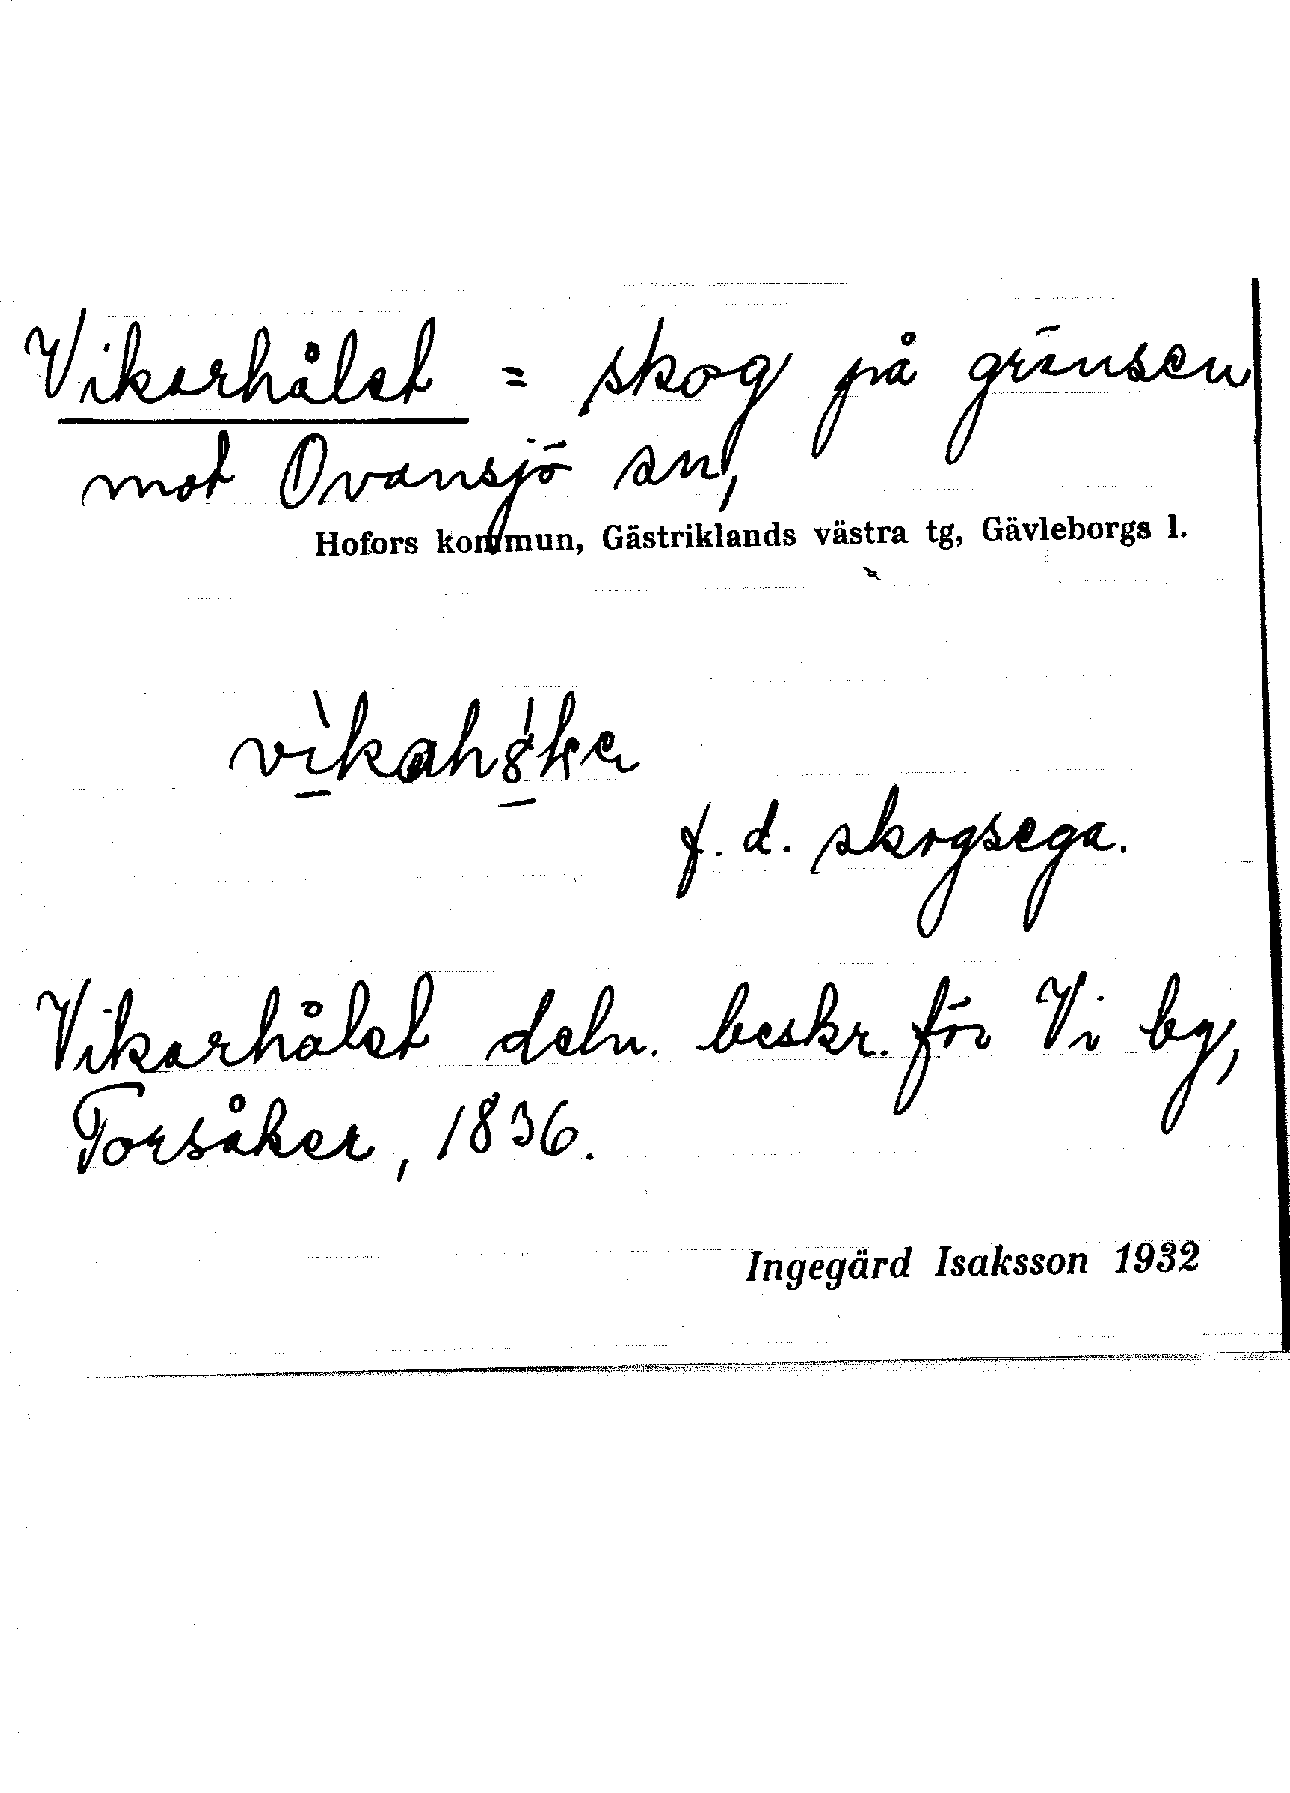 Vikarhålet = skog på gränsen
mot Ovansjö sn,
Hofors kommun, Gästriklands västra tg, Gävleborgs l.
f. d. skogsega.
Vikarhålet deln. beskr. för Vi by,
Torsåker, 1836.
Ingegärd Isaksson 1932